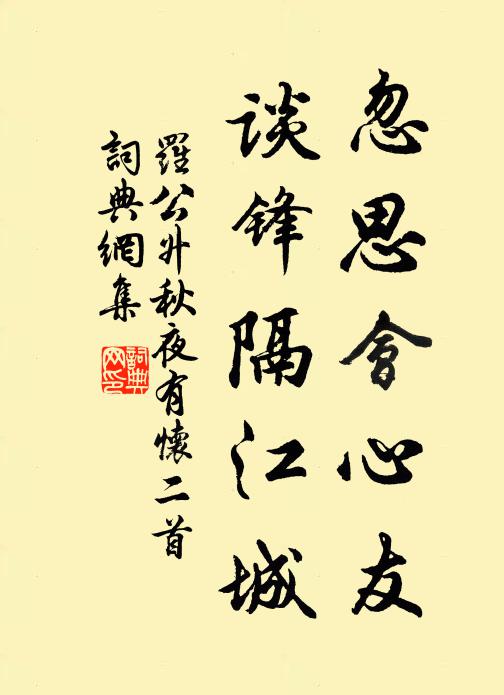 忽思會心友
談鋒隔江城
羅公升秋夜有懷二首
詞典網集
詞典网印